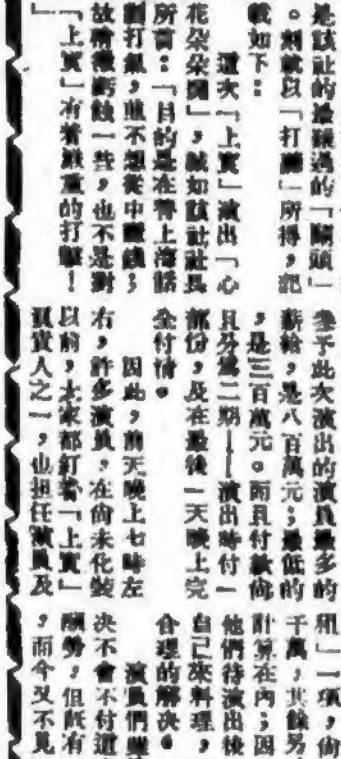 是該社的最難過的「關頭」
。刻就以「打聽」所得，記
載如下：
這次「上實」演出「心
花朵朵開」，誠如該社社長
所言：「目的是在替上海話
劇打氣，並不想從中賺錢；
故稍微虧蝕一些，也不是對
「上實」有着嚴重的打擊！
」
參予此次演出的演員最多的
薪給，是八百萬元；最低的
，是三百萬元。而且付款尙
且分為二期——演出時付一
部份，及在最後一天晚上完
全付清。
因此，前天晚上七時左
右，許多演員，在尙未化裝
以前，大家都釘着「上實」
負責人之一，也担任演員及
租」一項，尙
千萬，其餘另
計算在內；因
他們待演出後
自己來料理，
合理的解決。
演員們
決不會不付這
勢，但旣有
，而今又不見